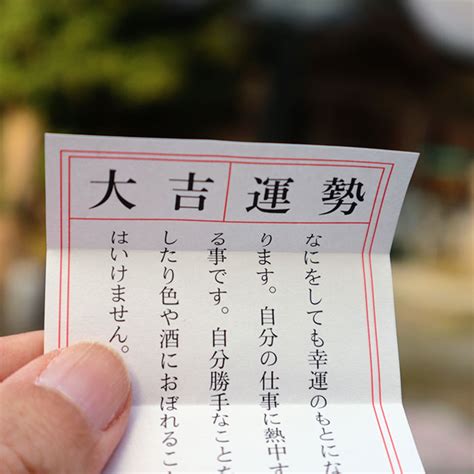 大吉 運勢
なにをしても幸運のもとにな
ります。自分の仕事に熱中す
る事です。自分勝手なことを
したり色や酒におぼれること
はいけません。